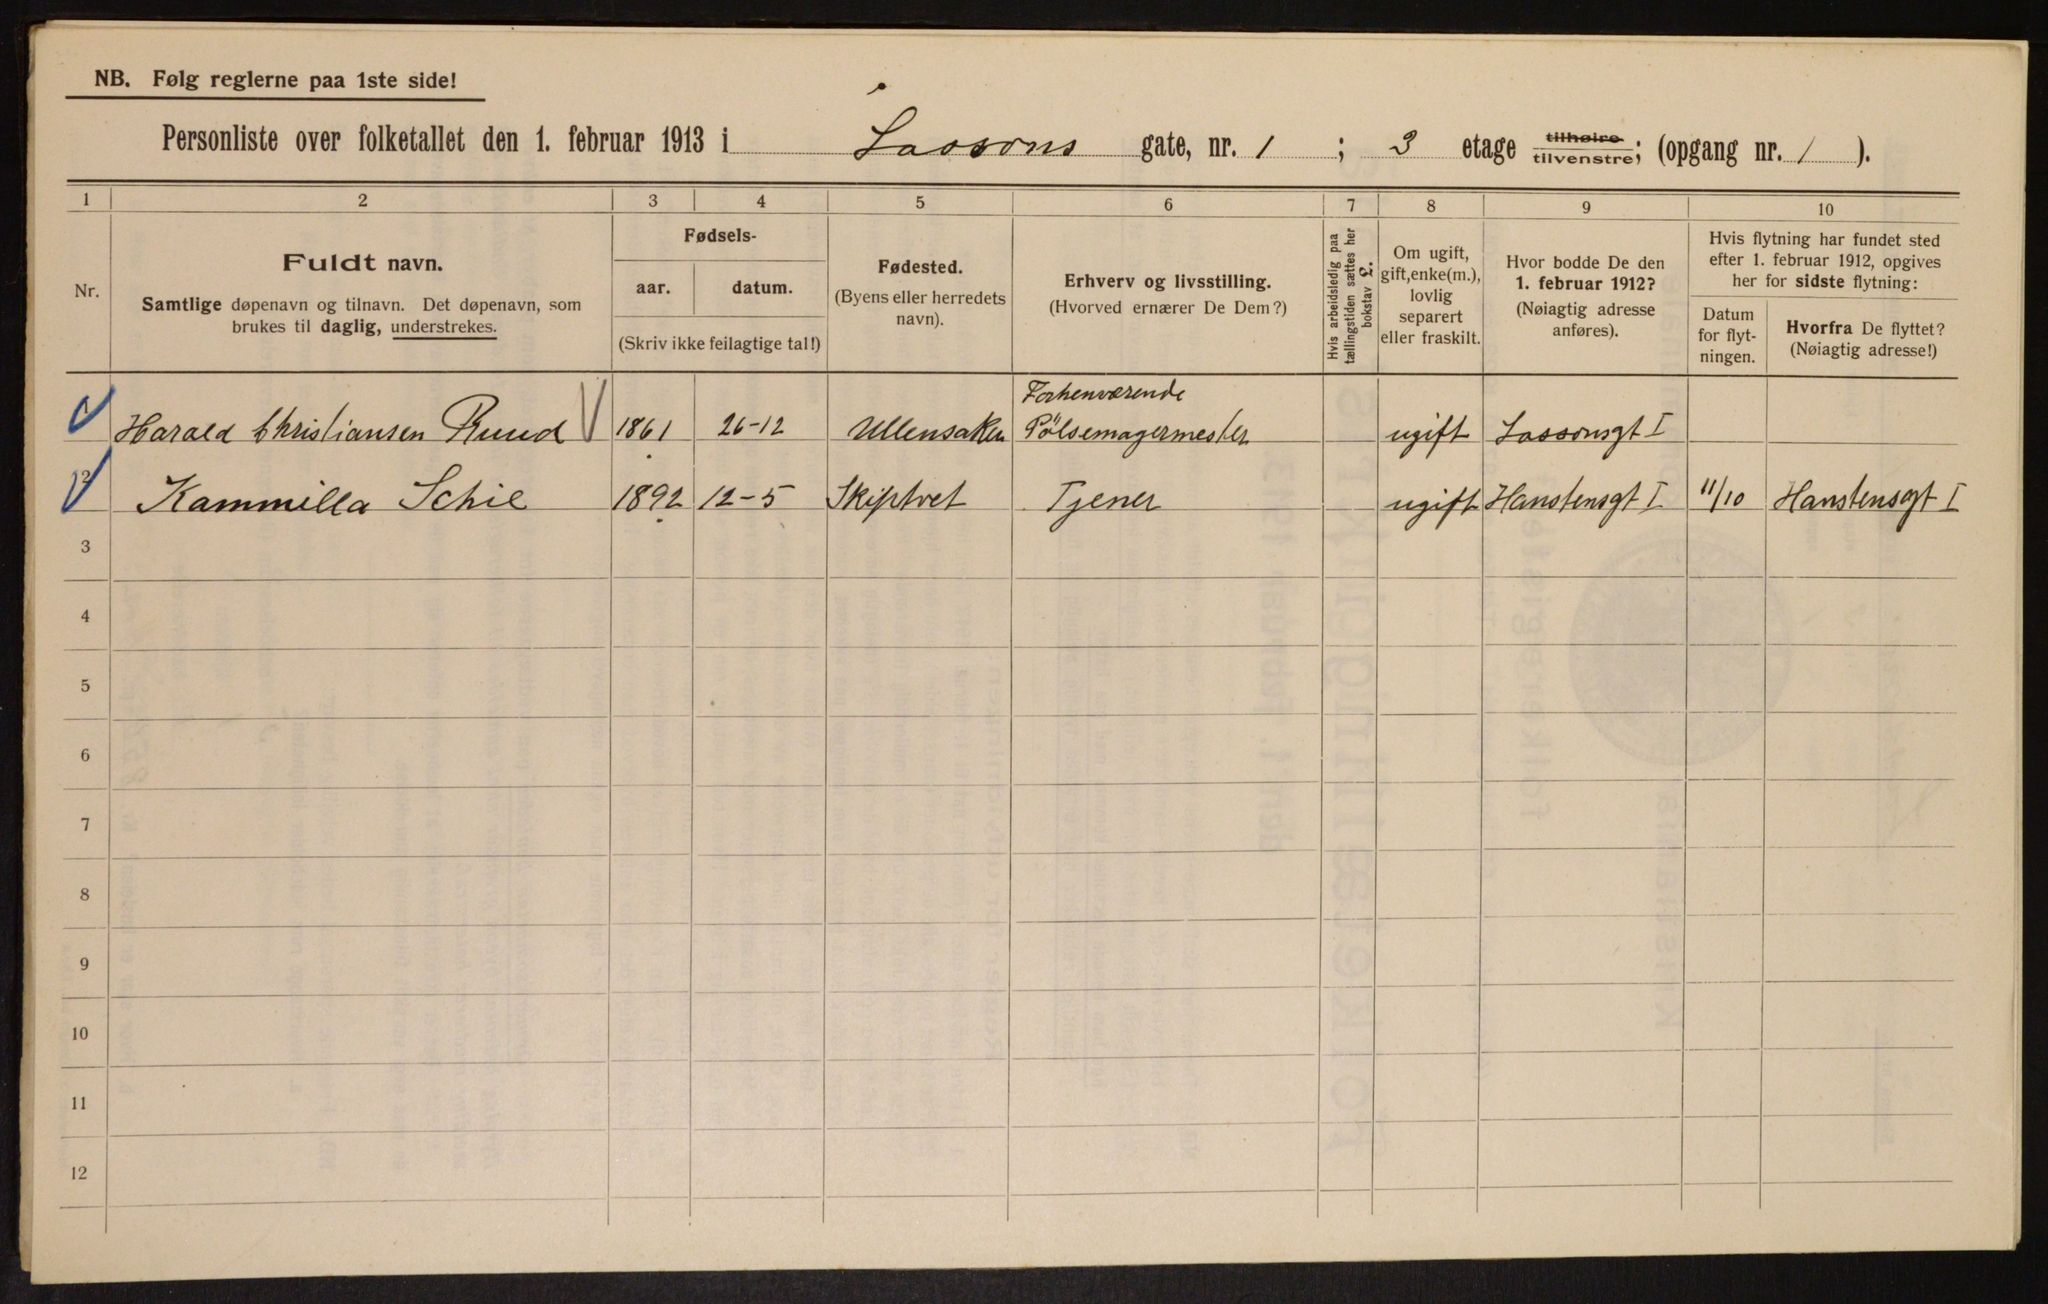 NB. Følg reglerne paa 1ste side!
Personliste over folketallet den 1. februar 1913 i Lassons gate, nr. 1 ; 3 etage tilhøire tilvenstre; (opgang nr. 1 ).
1 2 3 4 5 6 7 8 9 10
Nr.
Fuldt navn.
Samtlige døpenavn og tilnavn. Det døpenavn, som
brukes til daglig, understrekes.
Fødsels-
aar. datum.
(Skriv ikke feilagtige tal!)
Fødested.
(Byens eller herredets
navn).
Erhverv og livsstilling.
(Hvorved ernærer De Dem?)
Hvis arbeidsledig paa
tællingstiden sættes her
bokstav L.
Om ugift,
gift, enke(m.),
lovlig
separert
eller fraskilt.
Hvor bodde De den
1. februar 1912?
(Nøiagtig adresse
anføres).
Hvis flytning har fundet sted
efter 1. februar 1912, opgives
her for sidste flytning:
Datum
for flyt-
ningen.
Hvorfra De flyttet?
(Nøiagtig adresse!)
Forhenværende
Harald Christiansen Ruud 1861 26-12 Ullensaken Pölsemagermester ugift Lassonsgt I
2 Kammilla Schie 1892 12-5 Skiptvet Tjener ugift Hanstensgt I 11/10 Hanstensgt I
3
4
5
6
7
8
9
10
11
12